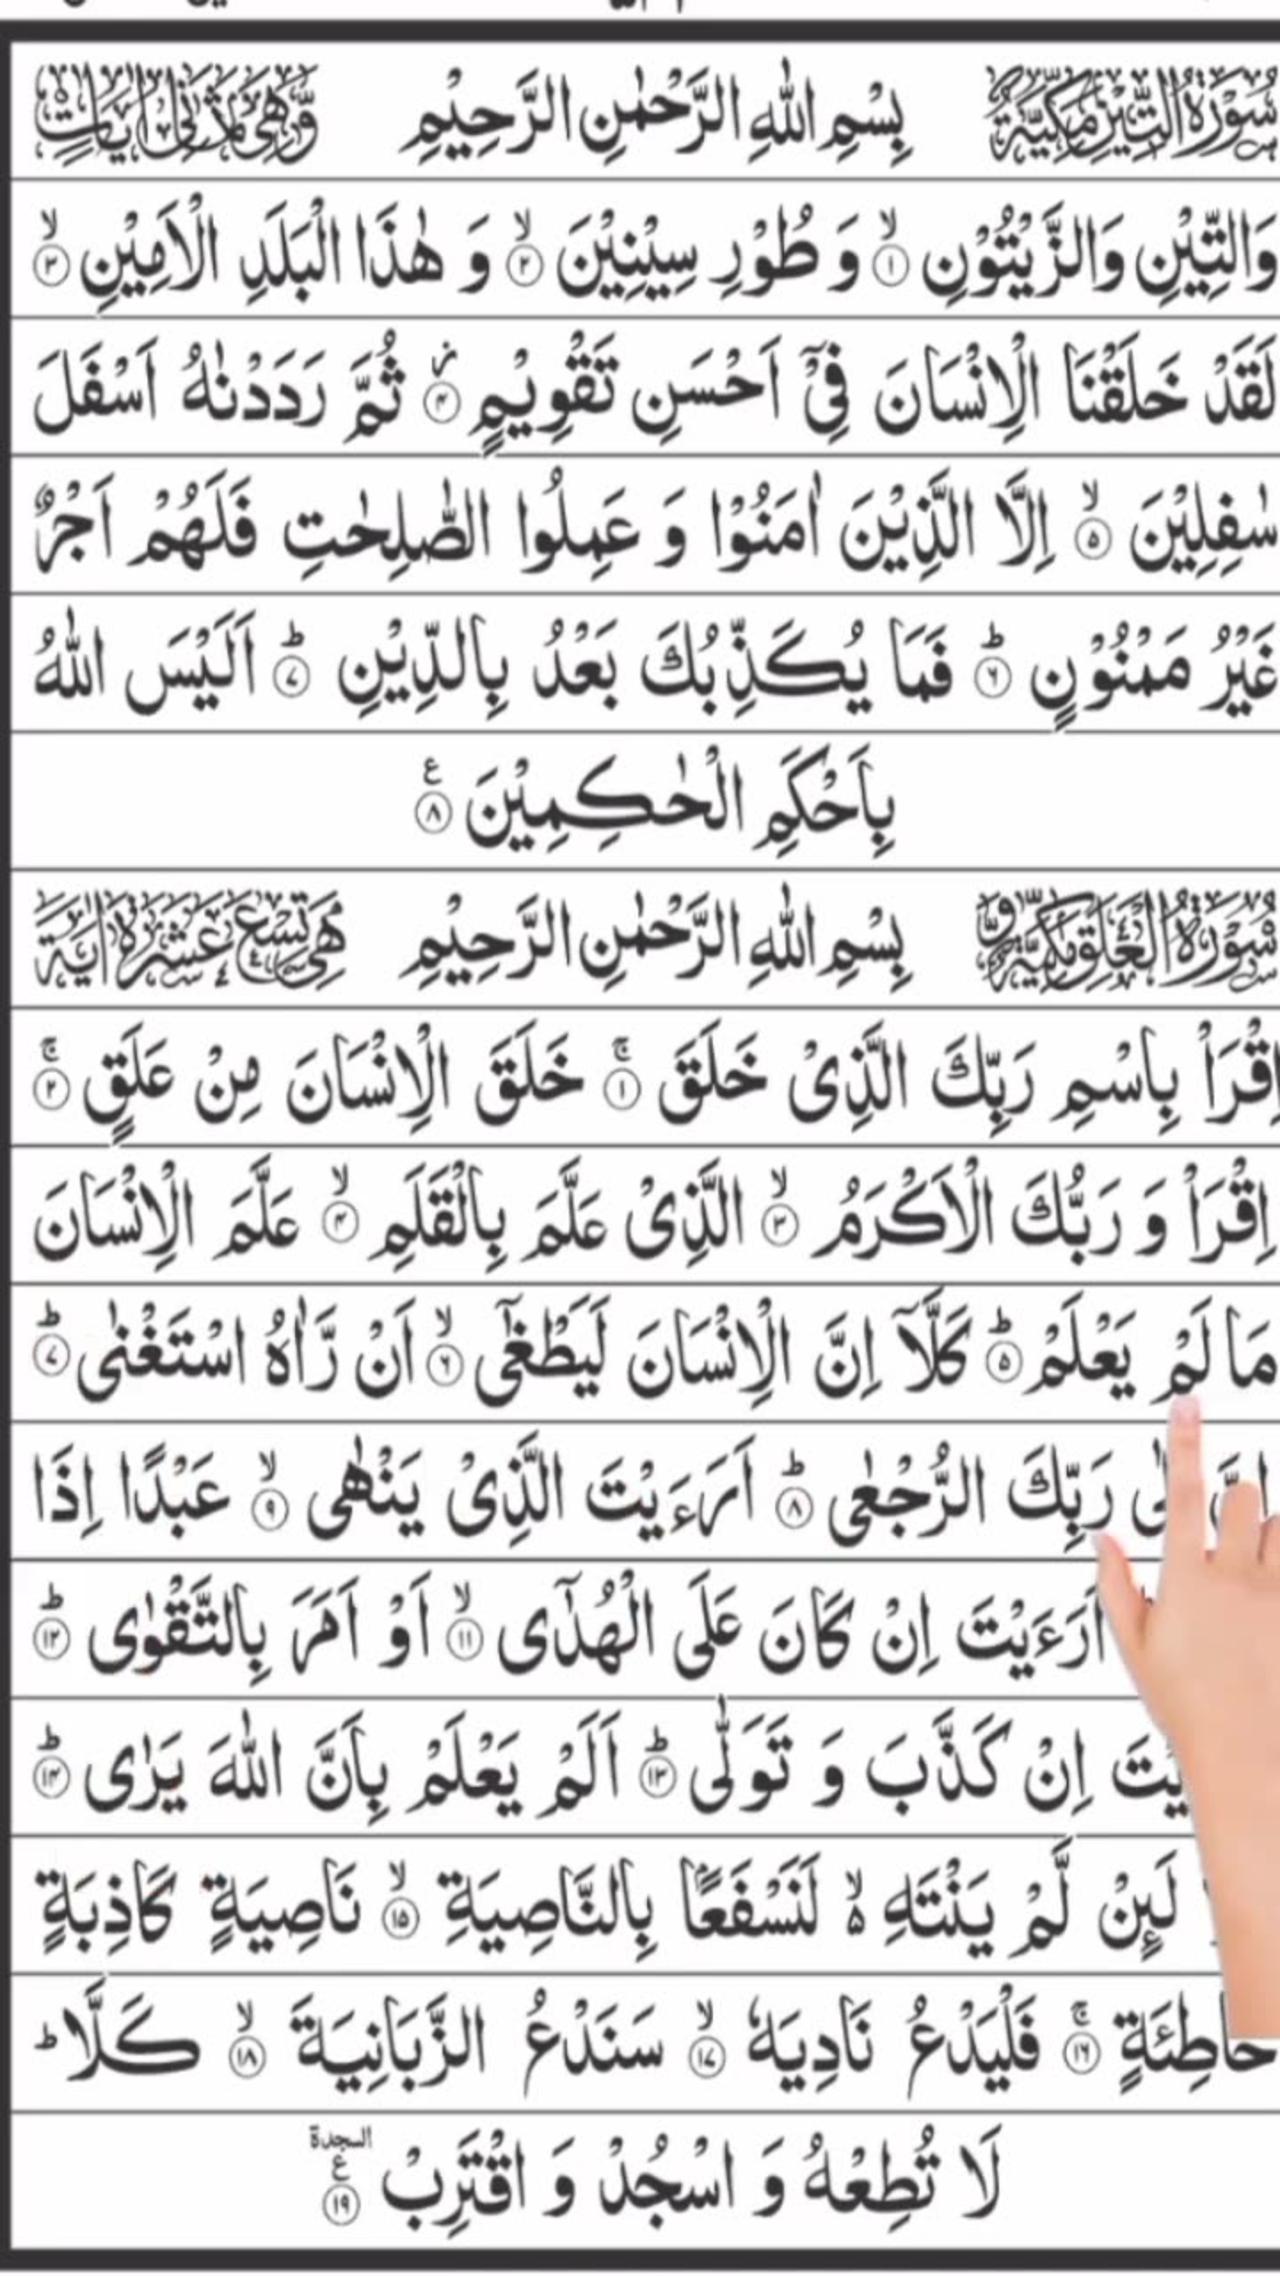 سُوْرَةُ التِّيْنِ مَكِّيَّةٌ بِسْمِ اللهِ الرَّحْمٰنِ الرَّحِيْمِ وَّهِيَ ثَمَانِيْ اٰيَاتٍ
وَالتِّيْنِ وَالزَّيْتُوْنِ ۙ﴿۱﴾ وَ طُوْرِ سِيْنِيْنَ ۙ﴿۲﴾ وَ هٰذَا الْبَلَدِ الْاَمِيْنِ ۙ﴿۳﴾
لَقَدْ خَلَقْنَا الْاِنْسَانَ فِيْۤ اَحْسَنِ تَقْوِيْمٍ ؗ﴿۴﴾ ثُمَّ رَدَدْنٰهُ اَسْفَلَ
سٰفِلِيْنَ ۙ﴿۵﴾ اِلَّا الَّذِيْنَ اٰمَنُوْا وَ عَمِلُوا الصّٰلِحٰتِ فَلَهُمْ اَجْرٌ
غَيْرُ مَمْنُوْنٍ ؕ﴿۶﴾ فَمَا يُكَذِّبُكَ بَعْدُ بِالدِّيْنِ ؕ﴿۷﴾ اَلَيْسَ اللهُ
بِاَحْكَمِ الْحٰكِمِيْنَ ﴿۸﴾ ع
سُوْرَةُ الْعَلَقِ مَكِّيَّةٌ وَّ بِسْمِ اللهِ الرَّحْمٰنِ الرَّحِيْمِ هِيَ تِسْعَ عَشْرَةَ اٰيَةً
اِقْرَاْ بِاسْمِ رَبِّكَ الَّذِىْ خَلَقَ ۚ﴿۱﴾ خَلَقَ الْاِنْسَانَ مِنْ عَلَقٍ ۚ﴿۲﴾
اِقْرَاْ وَ رَبُّكَ الْاَكْرَمُ ۙ﴿۳﴾ الَّذِىْ عَلَّمَ بِالْقَلَمِ ۙ﴿۴﴾ عَلَّمَ الْاِنْسَانَ
مَا لَمْ يَعْلَمْ ؕ﴿۵﴾ كَلَّاۤ اِنَّ الْاِنْسَانَ لَيَطْغٰۤى ۙ﴿۶﴾ اَنْ رَّاٰهُ اسْتَغْنٰى ؕ﴿۷﴾
رَبِّكَ الرُّجْعٰى ؕ﴿۸﴾ اَرَءَيْتَ الَّذِىْ يَنْهٰى ۙ﴿۹﴾ عَبْدًا اِذَا
اَرَءَيْتَ اِنْ كَانَ عَلَى الْهُدٰۤى ۙ﴿۱۱﴾ اَوْ اَمَرَ بِالتَّقْوٰى ؕ﴿۱۲﴾
اِنْ كَذَّبَ وَ تَوَلّٰى ؕ﴿۱۳﴾ اَلَمْ يَعْلَمْ بِاَنَّ اللهَ يَرٰى ؕ﴿۱۴﴾
لَئِنْ لَّمْ يَنْتَهِ ۙ۬ لَنَسْفَعًۢا بِالنَّاصِيَةِ ۙ﴿۱۵﴾ نَاصِيَةٍ كَاذِبَةٍ
خَاطِئَةٍ ۚ﴿۱۶﴾ فَلْيَدْعُ نَادِيَهٗ ۙ﴿۱۷﴾ سَنَدْعُ الزَّبَانِيَةَ ۙ﴿۱۸﴾ كَلَّا ؕ
لَا تُطِعْهُ وَ اسْجُدْ وَ اقْتَرِبْ ﴿۱۹﴾ السجدة ع